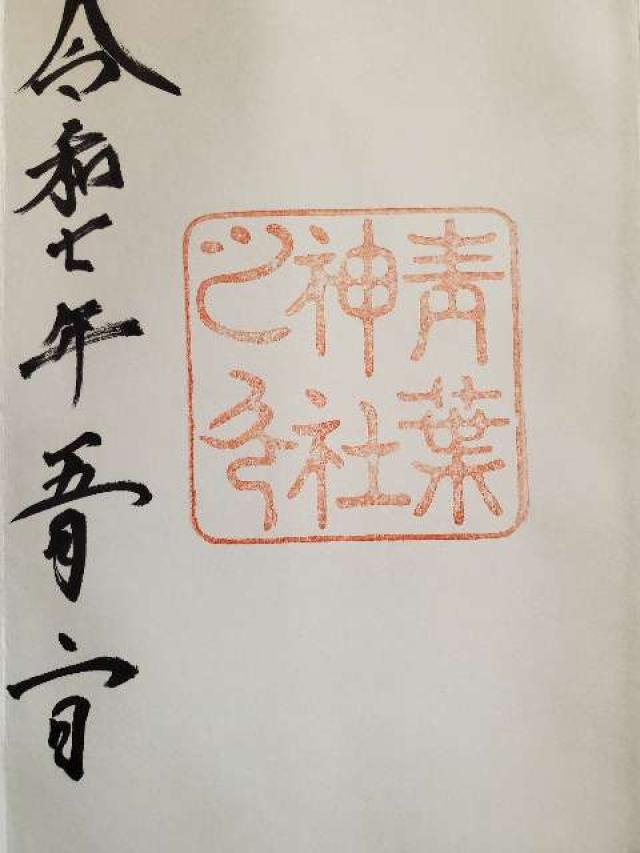 青葉
神社
之印
令和七年五月二日